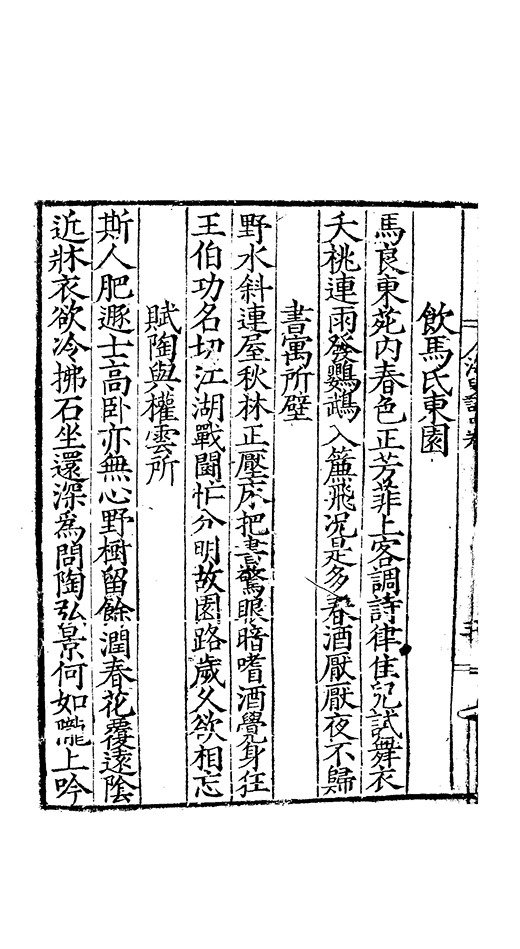 飲馬氏東園
馬良東苑内春色正芳菲上客調詩律佳兒試舞衣
夭桃連雨發鸚鵡入簾飛况是多春酒厭厭夜不歸
書寓所壁
野水斜連屋秋林正壓床把書驚眼暗嗜酒覺身狂
王伯功名切江湖戰鬬忙分明故園路歲久欲相忘
賦陶與權雲所
斯人肥遯士高卧亦無心野樹留餘潤春花覆遠陰
近牀衣欲冷拂石坐還深爲問陶弘景何如隴上吟